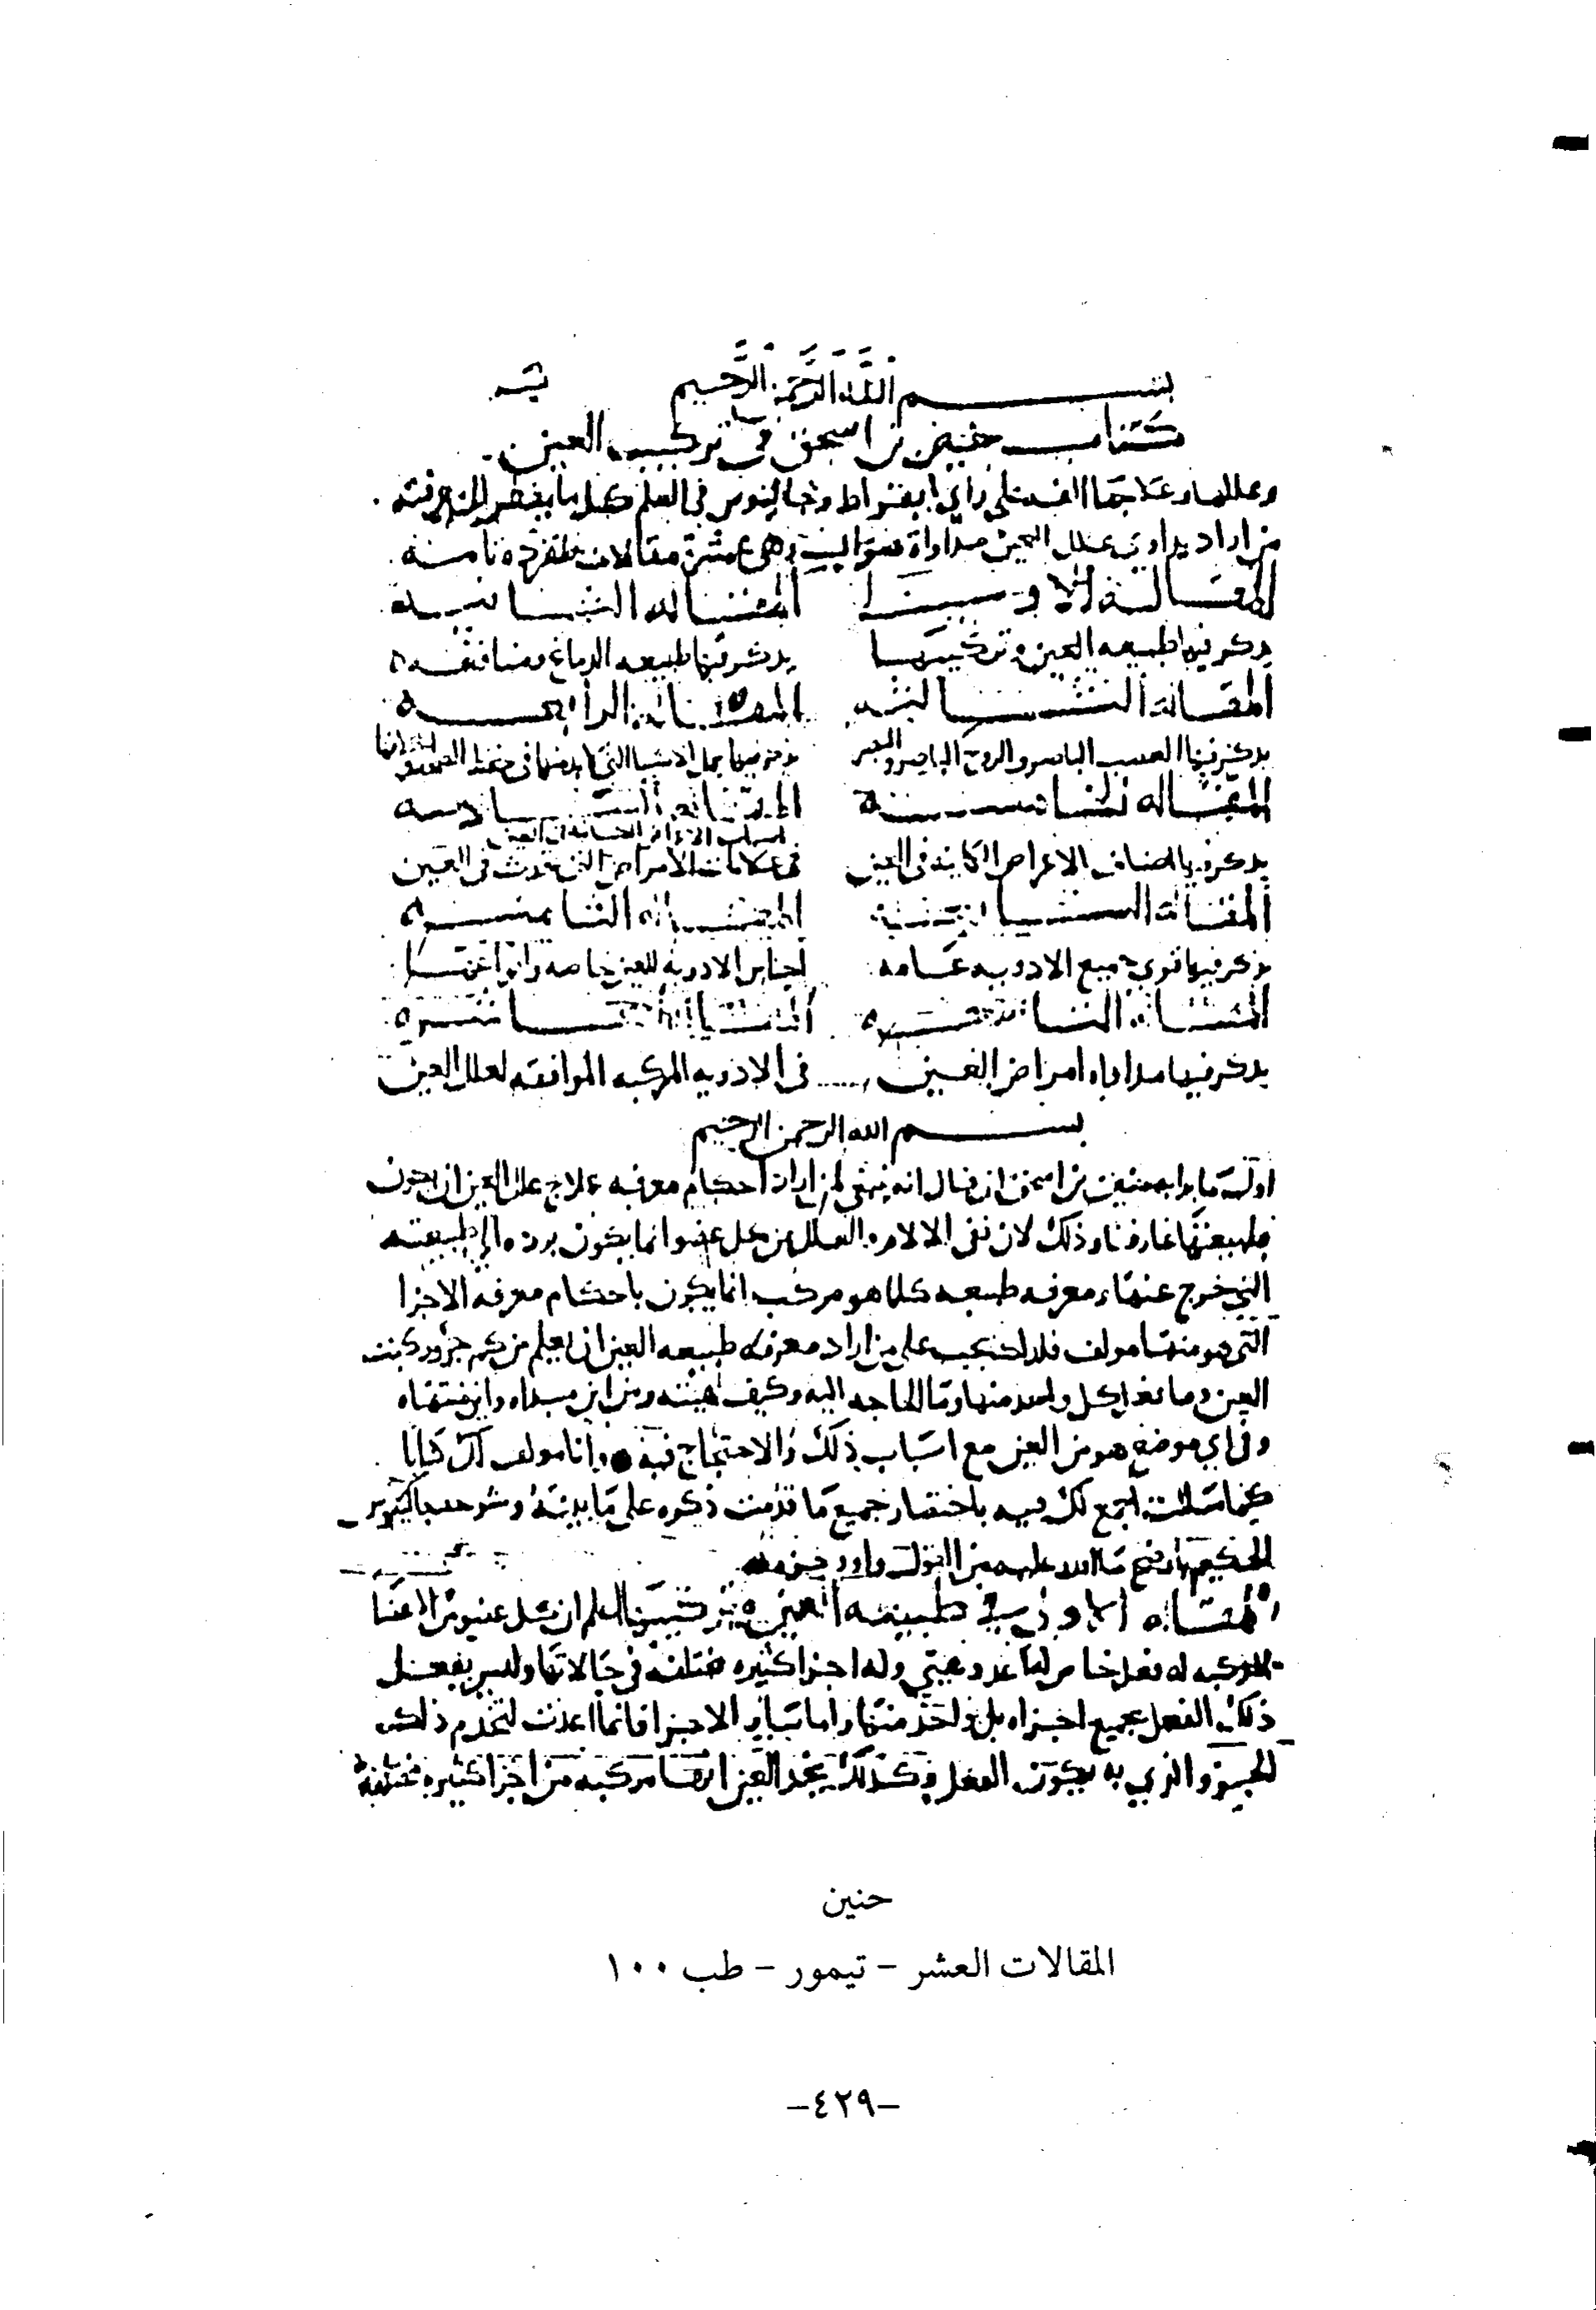 بسم الله الرحمن الرحيم
كتاب حنين بن اسحق في تركيب العين
وعللها وعلاجها الفه على راي ابقراط وجالينوس في العلم كل ما يفطر الى معرفته
من اراد يداوي علل العين مداواة صواب وهي عشرة مقالات
المقالة الاولى المقالة الثانية
يذكر فيها طبيعه العين وتركيبها يذكر فيها طبيعه الدماغ ومنافعه
المقالة الثالثه المقالة الرابعه
يذكر فيها العصب الباصر والروح الباصر والبصر يذكر فيها جمل الاشيا التي لا بد منها في حفظ الصحه
المقاله الخامسة المقاله السادسه
اسباب الاعراض الكاينه في العين
يذكر فيها اصناف الاعراض الكاينه في العين في علامات الامراض التي تحدث في العين
المقالة السابعة المقاله الثامنه
يذكر فيها قوى جميع الادويه عامه اجناس الادويه للعين خاصه وانواعها
المقالة التاسعه المقالة العاشره
يذكر فيها مداواه امراض العين في الادويه المركبه الموافقه لعلل العين
بسم الله الرحمن الرحيم
اول ما بدا به حنين بن اسحق ان قال انه ينبغي لمن اراد احكام معرفه علاج علل العين ان يكون
بطبيعتها عارفا وذلك لان نفي الالام والعلل عن كل عضو انما يكون برده الى طبيعته
التي خرج عنها ومعرفه طبيعه كلما هو مركب انما يكون باحكام معرفه الاجزا
التي هو منها مولف فلذلك يجب على من اراد معرفه طبيعه العين ان يعلم من كم جزو ركبت
العين وما فعل كل واحد منها وما الحاجه اليه وكيف هيئته ومن اين مبداه واين منتهاه
وفي اي موضع هو من العين مع اسباب ذلك والاحتجاج فيه وانا مولف لك كتابا
كما سالت اجمع لك فيه باختصار جميع ما قدمت ذكره على ما بينه وشرحه جالينوس
الحكيم باوضح ما اقدر عليه من القول واوجزه
المقاله الاولى في طبيعه العين وتركيبها اعلم ان كل عضو من الاعضا
المركبه له فعل خاص وله اجزا كثيره مختلفه في حالاتها وليس يفعل
ذلك الفعل بجميع اجزاه بل بواحد منها واما سائر الاجزا فانما اعدت لتخدم ذلك
الجزو الذي به يكون الفعل وكذلك نجد العين انها مركبه من اجزا كثيره مختلفه
حنين
المقالات العشر - تيمور - طب ١٠٠
-٤٢٩-